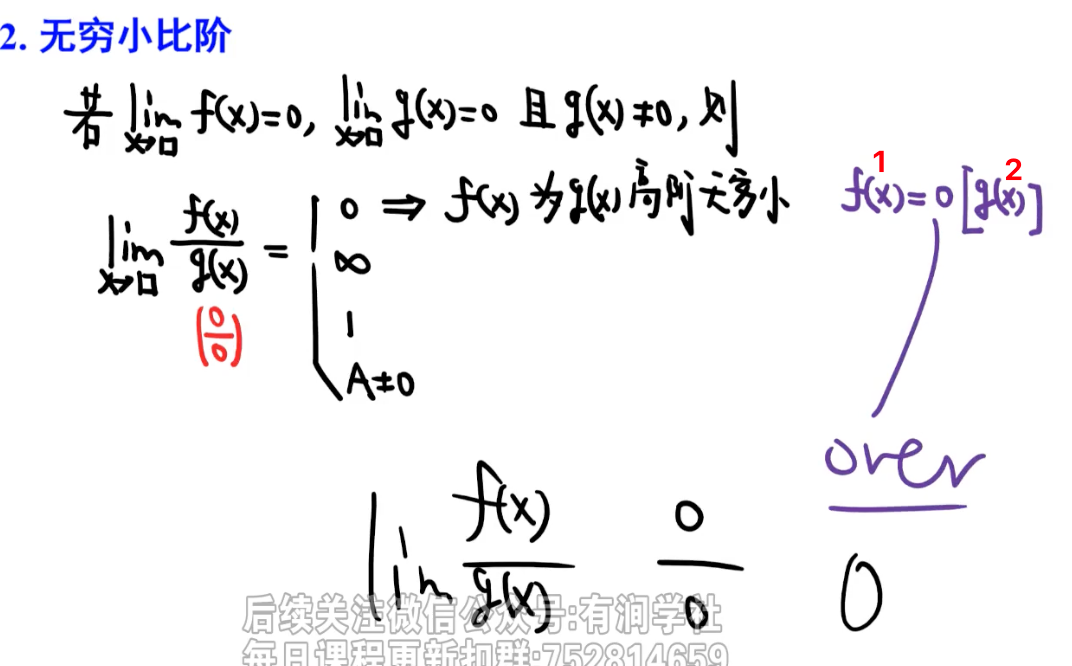 2. 无穷小比阶
若 lim x→□ f(x)=0, lim x→□ g(x)=0 且 g(x)≠0, 则
lim x→□ f(x)/g(x) = { 0 ⇒ f(x) 为 g(x) 高阶无穷小
1 2
f(x)=0[g(x)]
∞
(0/0)
1
A≠0
over
lim f(x)/g(x) 0/0 0
后续关注微信公众号:有润学社
每日课程更新扣群:752814659